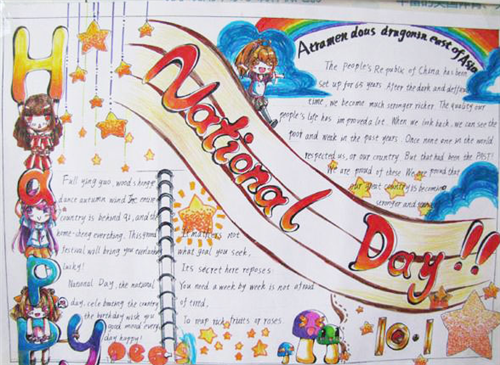 HAPPY
National Day!!
Atramendous dragonin east of Asia
The people's Republic of China has been
set up for 65 years. After the dark and
time, we become much seronger richer. The quility our
people's life has improved a lot. When we look back, we can see the
poor and weak in the past years. Once none one in the world
respected us, or our country. But that had been the PAST!
We are proud of these. We are proud that
our that country is becoming
seronger and
Full ying guo, wind
dance autumn wind
country is behind 91, and the
home-bring everything. This good
festival will bring you
lucky!
National Day, the national
day, celebrating the country
the birthday wish you
good mood every
day happy!
not
what goal you seek,
Its secret here reposes:
You need a week by week is not afraid
of tired,
To rock, fruits or roses.
10.1